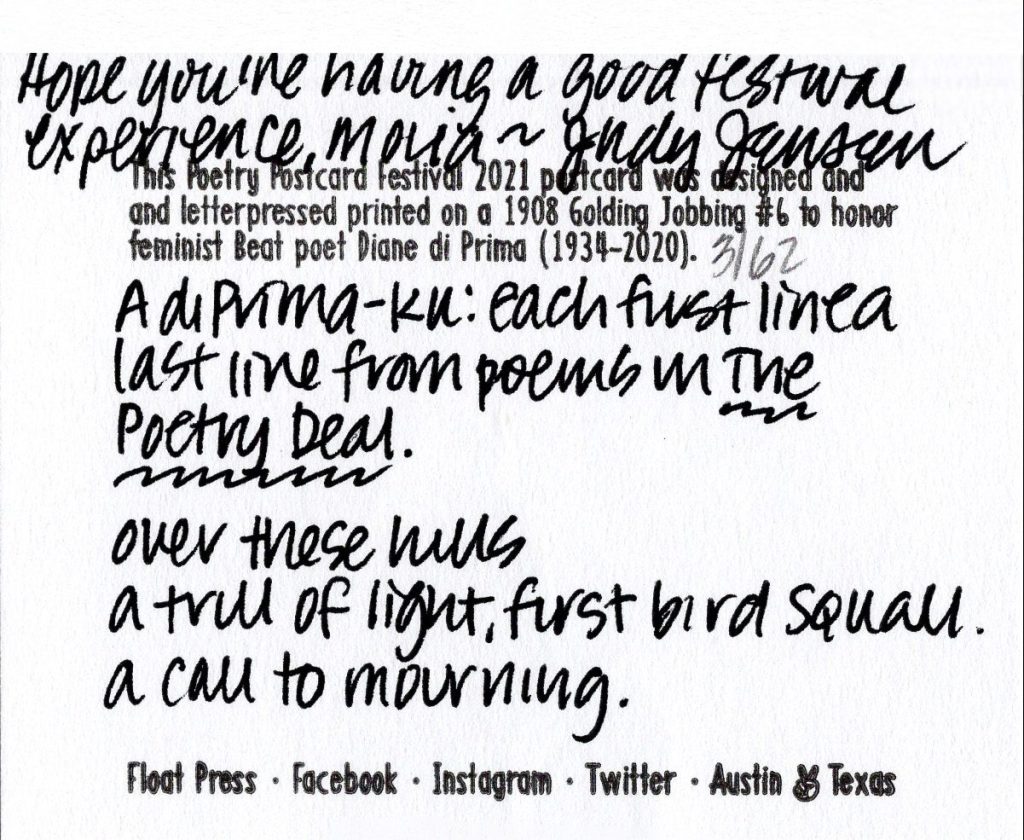 Hope you're having a good festival
experience, Moria ~ Judy Jansen
This Poetry Postcard Festival 2021 postcard was designed and
and letterpressed printed on a 1908 Golding Jobbing #6 to honor
feminist Beat poet Diane di Prima (1934–2020). 3/62
A di Prima-ku: each first line a
last line from poems in The
Poetry Deal.
over these hills
a trill of light, first bird squall.
a call to mourning.
Float Press · Facebook · Instagram · Twitter · Austin ✌ Texas